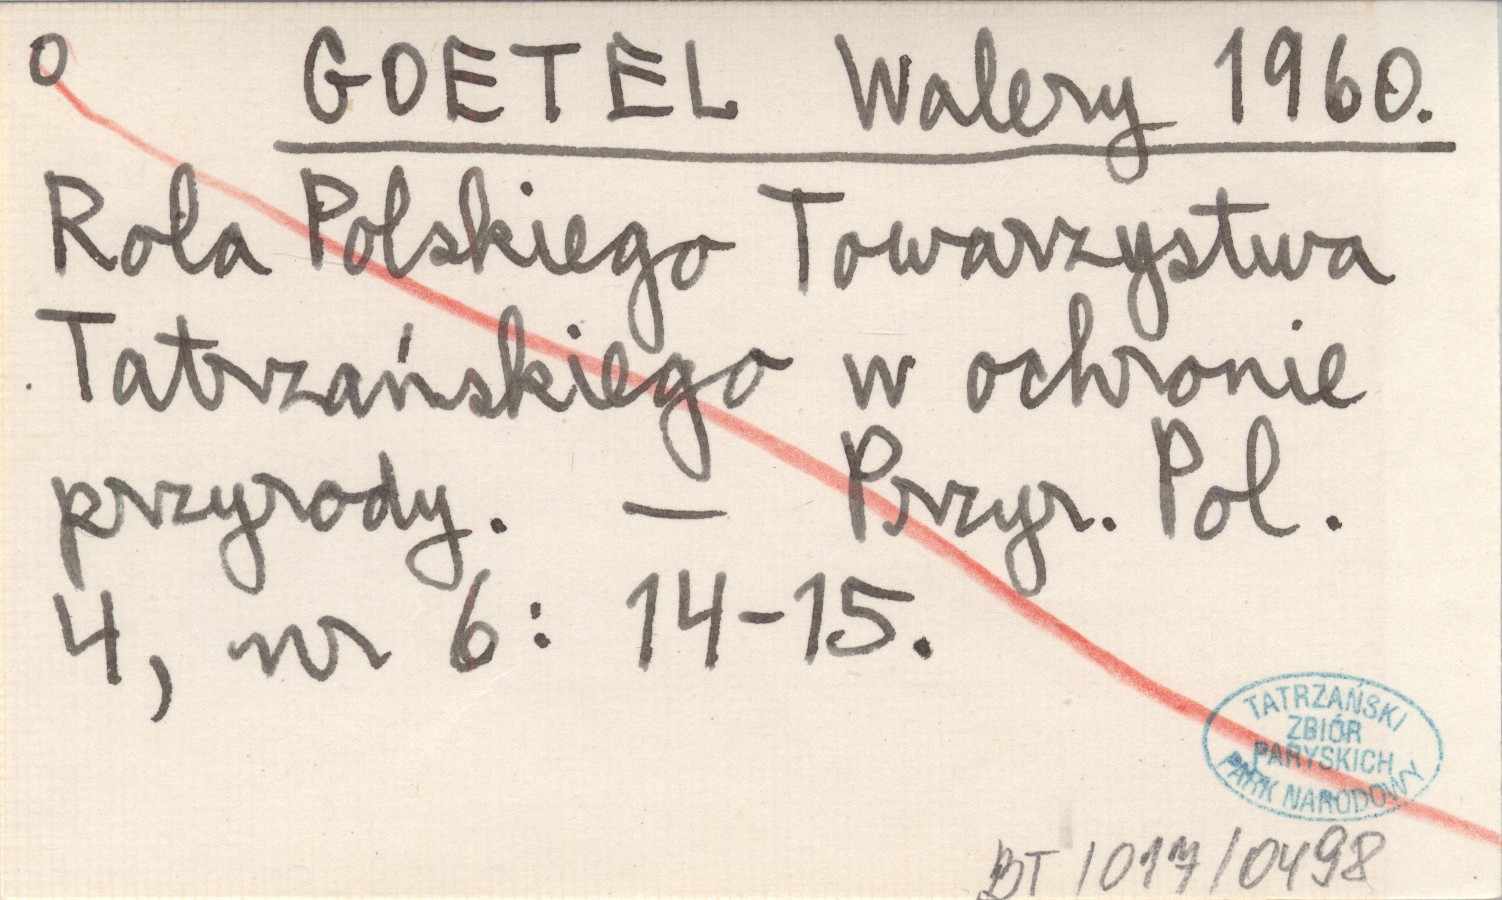 O GOETEL Walery 1960.
Rola Polskiego Towarzystwa
Tatrzańskiego w ochronie
przyrody. — Przyr. Pol.
4, nr 6: 14-15.
TATRZAŃSKI
ZBIÓR
PARYSKICH
PARK NARODOWY
BT/017/0498